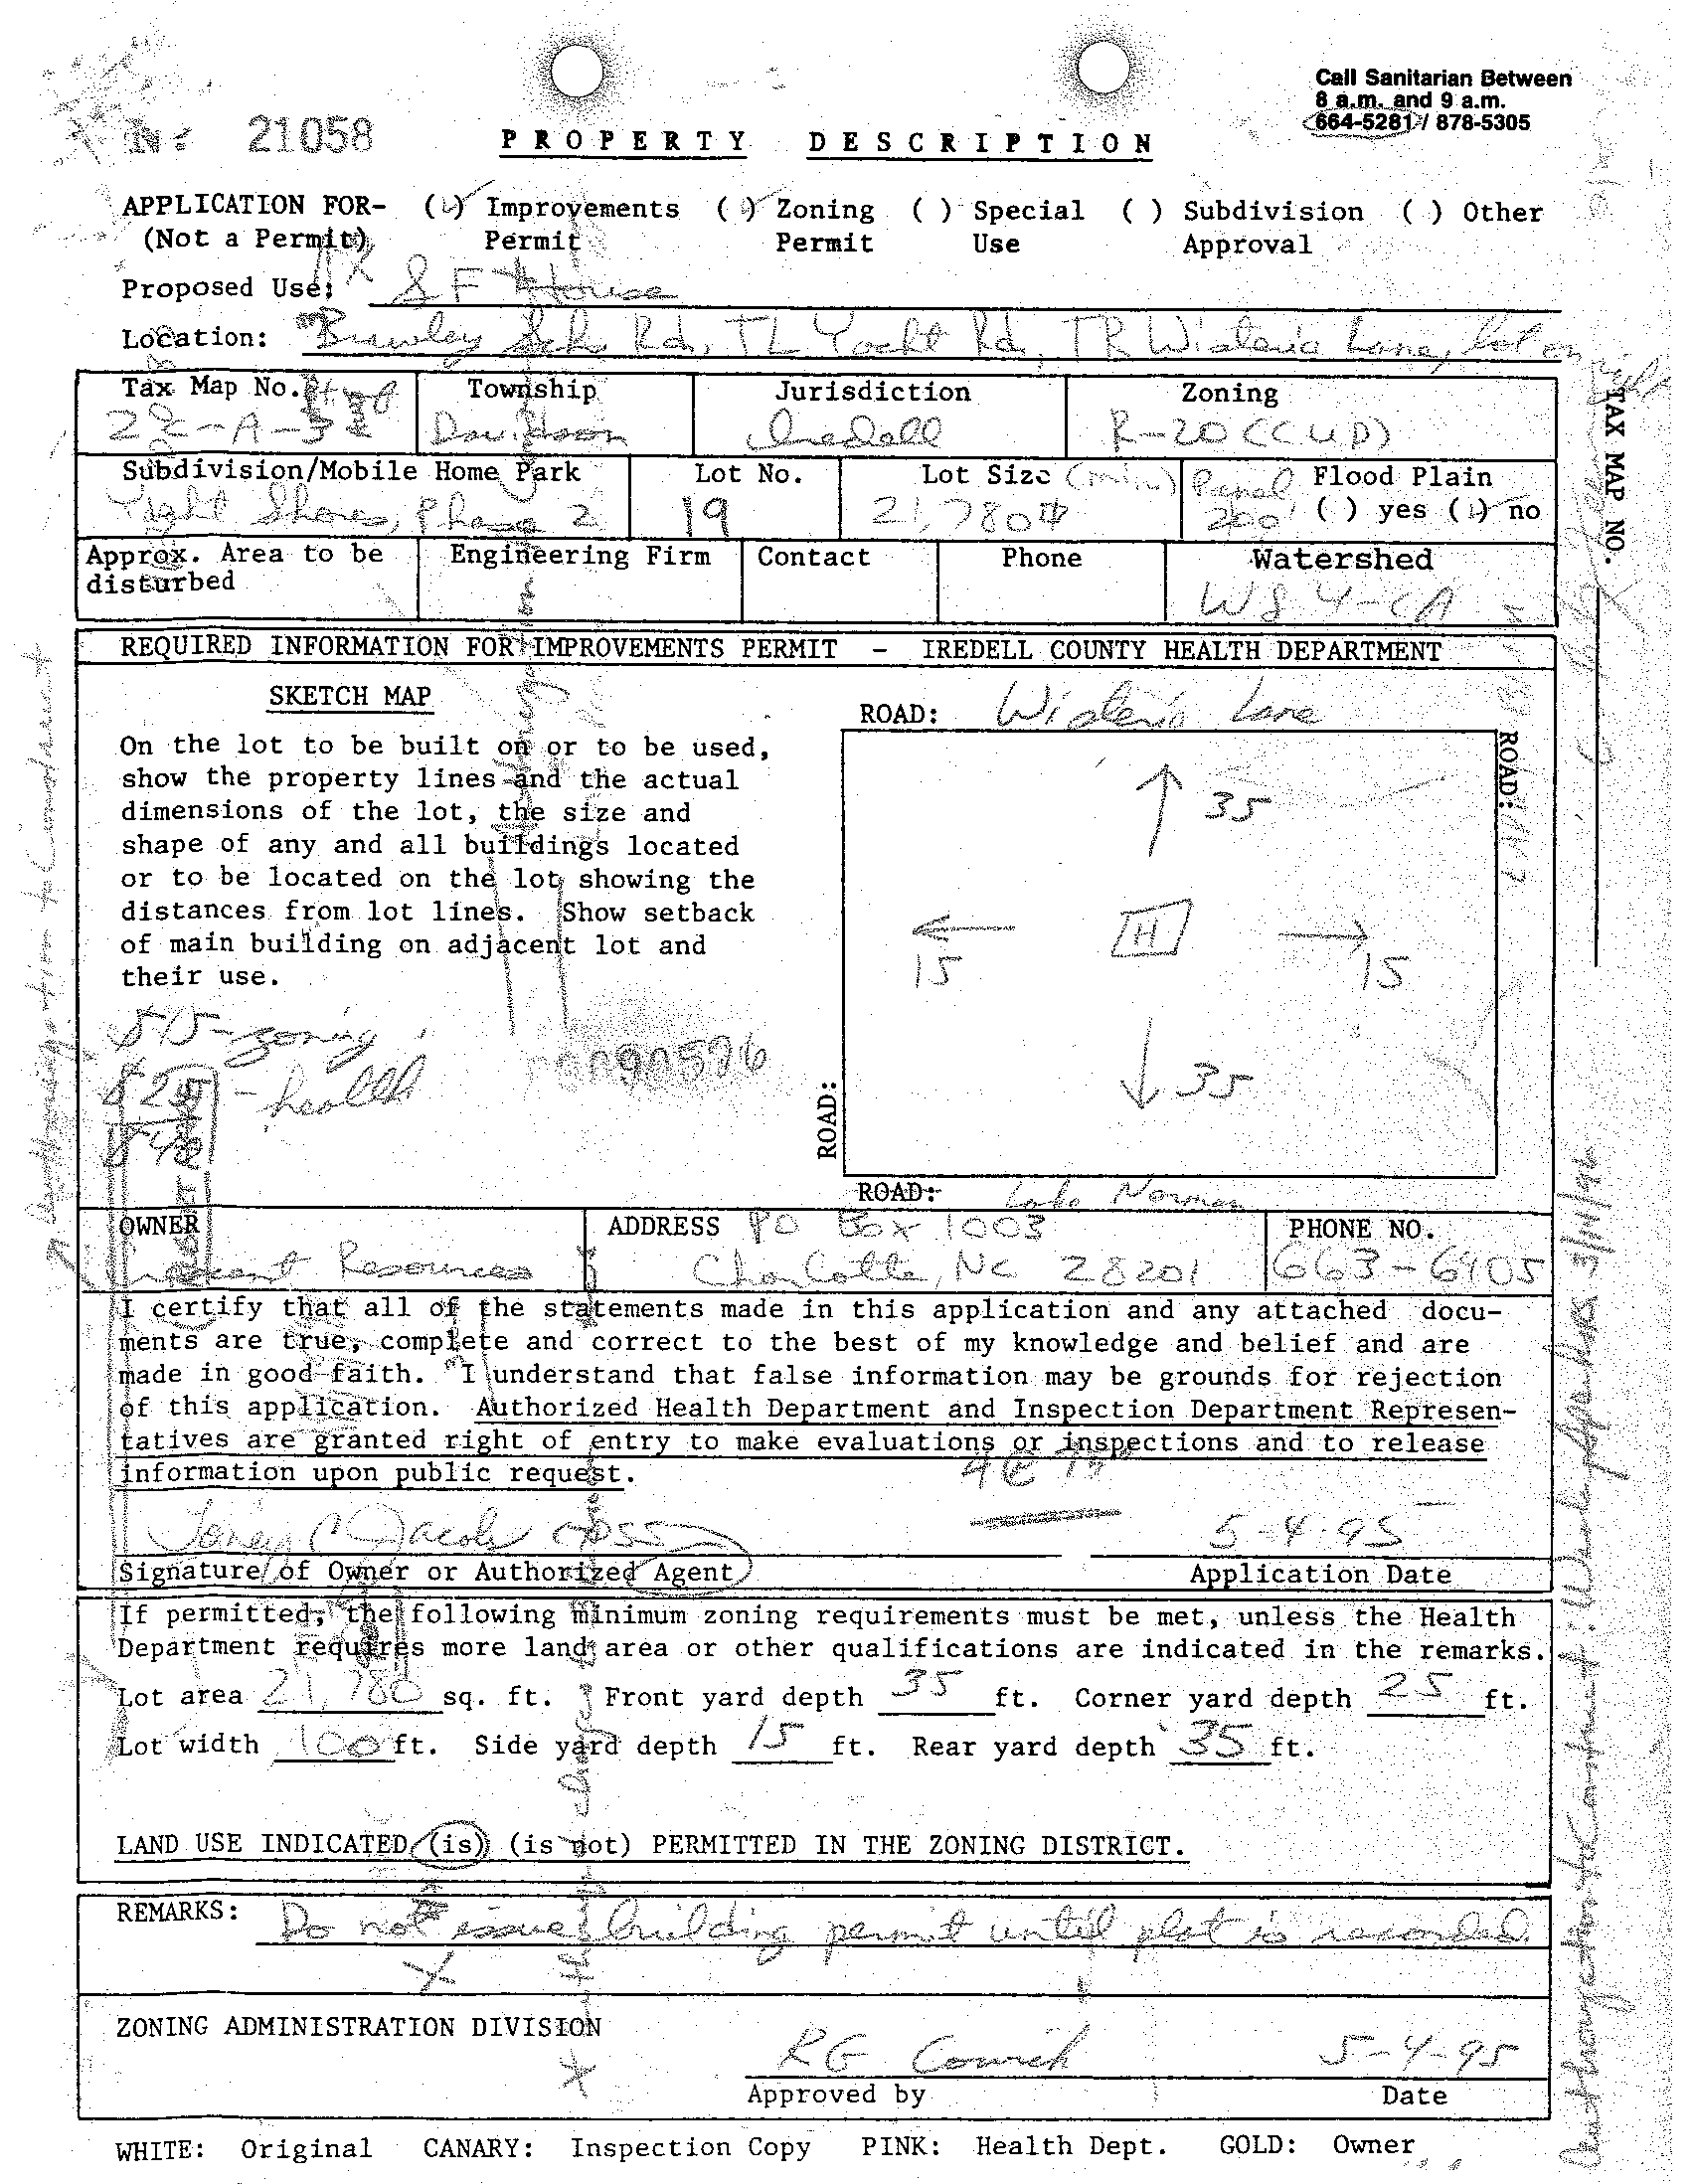 Call Sanitarian Between
8 a.m. and 9 a.m.
664-5281 / 878-5305
21058
PROPERTY DESCRIPTION
APPLICATION FOR- ( ) Improvements ( ) Zoning ( ) Special ( ) Subdivision ( ) Other
(Not a Permit) Permit Permit Use Approval
Proposed Use: SF House
Location: Brawley Sch. Rd, TL Yacht Rd, TR Wisteria Lane, lot on
Tax Map No. Township Jurisdiction Zoning
Davidson Iredell R-20 (CUD)
Subdivision/Mobile Home Park Lot No. Lot Size (min) Panel Flood Plain
Shores, Phase 2 19 21,780 200 ( ) yes ( ) no
Approx. Area to be Engineering Firm Contact Phone Watershed
disturbed
WS 4-CA
TAX MAP NO.
REQUIRED INFORMATION FOR IMPROVEMENTS PERMIT - IREDELL COUNTY HEALTH DEPARTMENT
SKETCH MAP
ROAD: Wisteria Lane
On the lot to be built on or to be used,
show the property lines and the actual
dimensions of the lot, the size and
shape of any and all buildings located
or to be located on the lot, showing the
distances from lot lines. Show setback
of main building on adjacent lot and
their use.
ROAD:
35
H
15
15
35
zoning
- health
ROAD:
ROAD: Lake Norman
OWNER ADDRESS PO Box 1003 PHONE NO.
Resources Charlotte, NC 28201 663-6905
I certify that all of the statements made in this application and any attached docu-
ments are true, complete and correct to the best of my knowledge and belief and are
made in good faith. I understand that false information may be grounds for rejection
of this application. Authorized Health Department and Inspection Department Represen-
tatives are granted right of entry to make evaluations or inspections and to release
information upon public request.
5-4-95
Signature of Owner or Authorized Agent Application Date
If permitted, the following minimum zoning requirements must be met, unless the Health
Department requires more land area or other qualifications are indicated in the remarks.
Lot area 21,780 sq. ft. Front yard depth 35 ft. Corner yard depth 25 ft.
Lot width 100 ft. Side yard depth 15 ft. Rear yard depth 35 ft.
LAND USE INDICATED (is) (is not) PERMITTED IN THE ZONING DISTRICT.
REMARKS: Do not issue building permit until plat is recorded.
ZONING ADMINISTRATION DIVISION
RG 5-4-95
Approved by Date
WHITE: Original CANARY: Inspection Copy PINK: Health Dept. GOLD: Owner